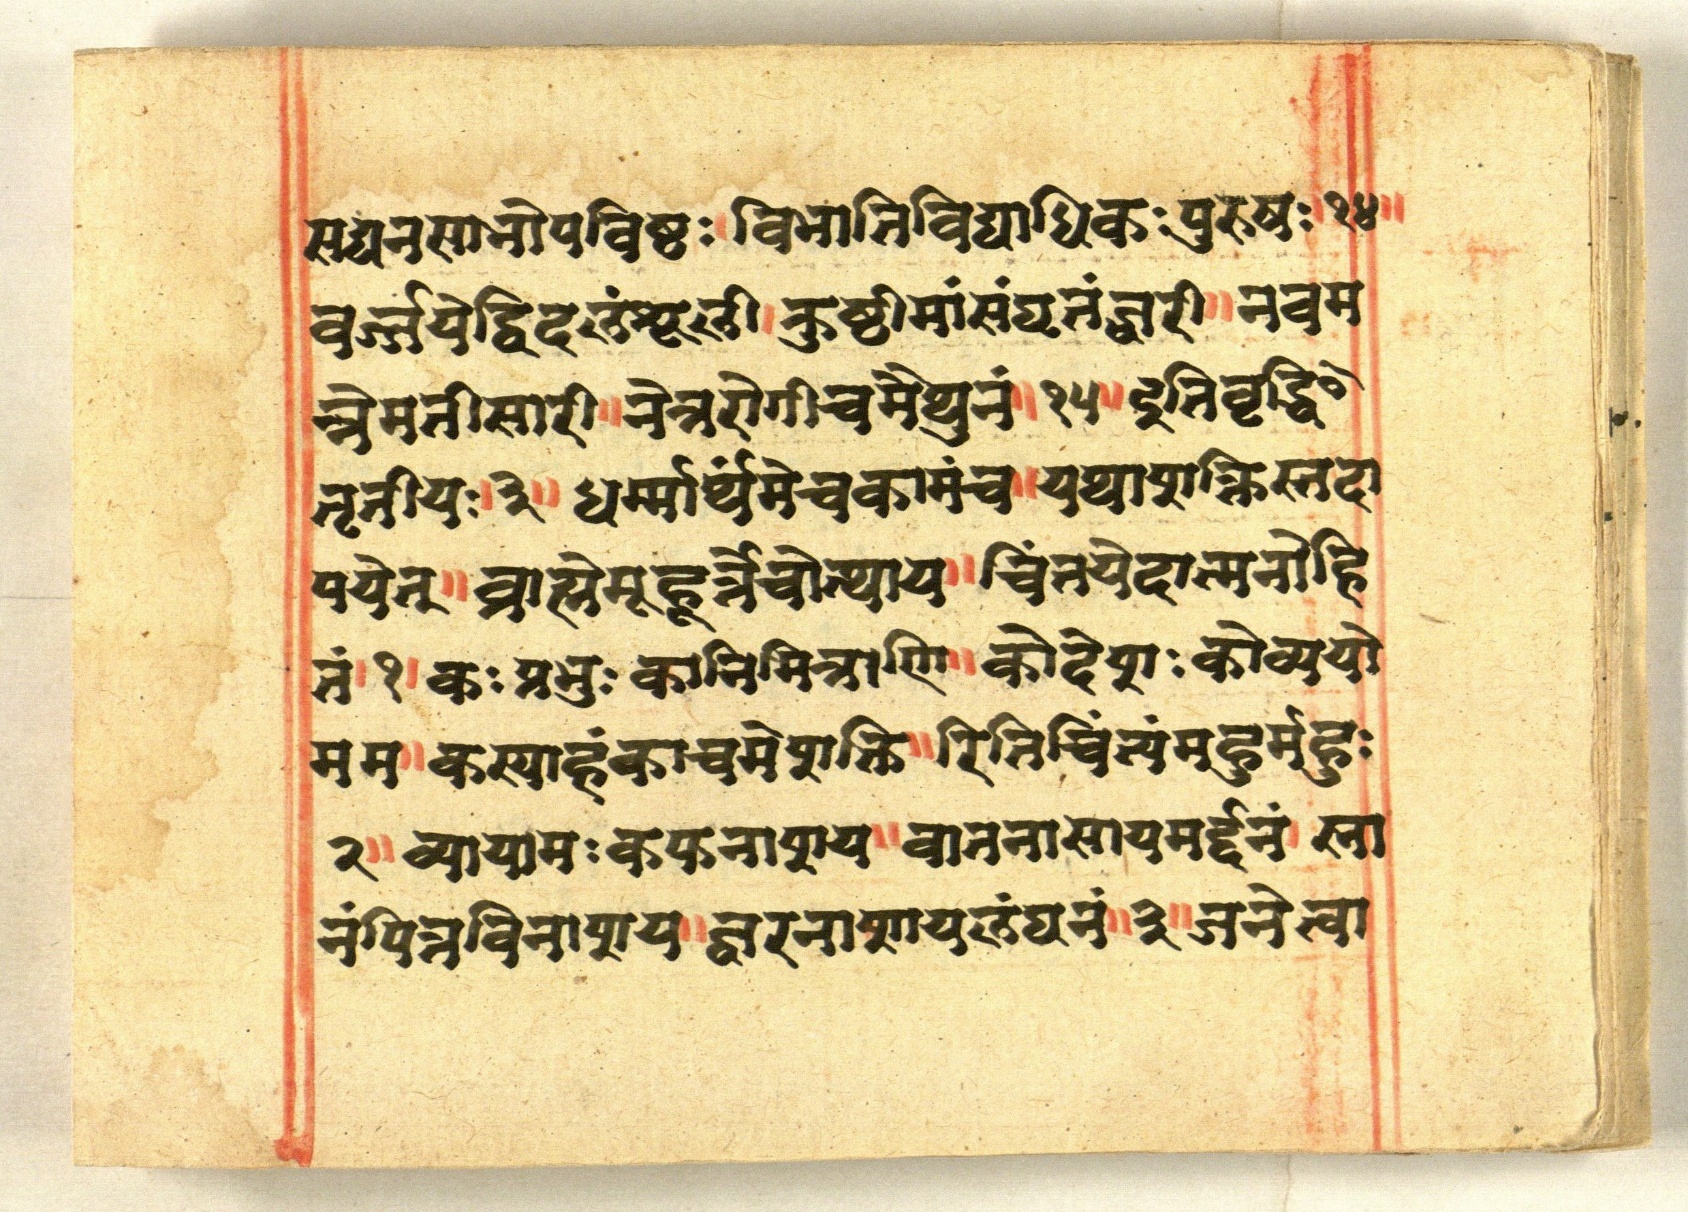 सद्यनसानोपविष्ठः। विभातिविद्याधिकःपुरुषः॥१४॥
वर्ज्जयेद्विदलंशूली। कुष्ठीमांसंघृतंज्वरी॥ नवम
न्नेमतीसारी॥ नेत्ररोगीचमैथुनं॥१५॥ इतिवृद्धि०
तृतीयः॥३॥ धर्म्मार्थंमेचकामंच॥ यथाशक्तिस्तदा
पयेत्॥ ब्राह्मेमूहूर्त्तेचोत्थाय॥ चिंतयेदात्मनोहि
तं।१। कः प्रभुः कानिमित्राणि॥ कोदेशः कोव्ययो
मम॥ कस्याहंकाचमेशक्ति॥ रितिचिंत्यंमुहुर्मुहुः
२॥ व्यायामः कफनाशाय॥ वातनासायमर्द्दनं। स्ना
नंपित्तविनाशाय॥ ज्वरनाशायलंघनं॥३॥ जनेत्वा